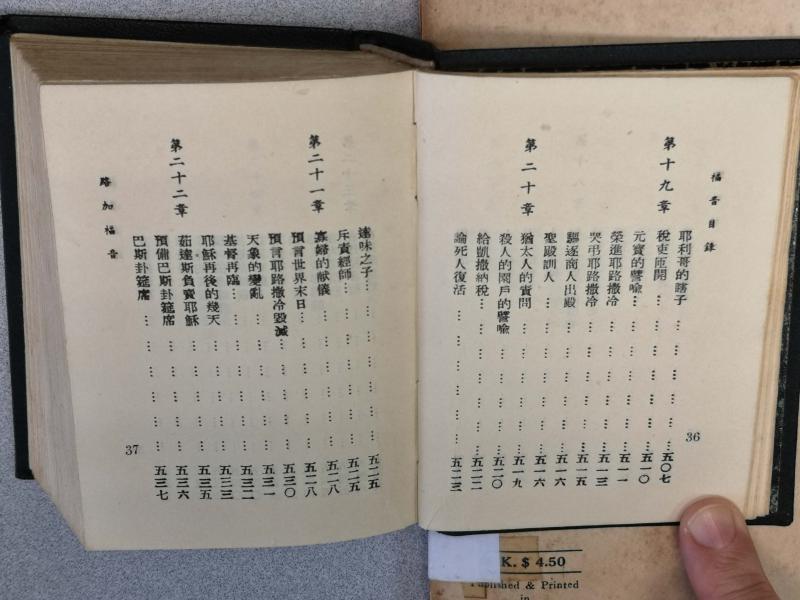 福音目錄
第十九章
耶利哥的瞎子… … … … … …五〇七
稅吏匝開… … … … … …五一〇
元寶的譬喻… … … … … …五一一
榮進耶路撒冷… … … … … …五一三
哭弔耶路撒冷… … … … … …五一五
驅逐商人出殿… … … … … …五一六
第二十章
聖殿訓人… … … … … …五一六
猶太人的責問… … … … … …五一九
殺人的園戶的譬喻… … … … …五二〇
給凱撒納稅… … … … … …五二二
論死人復活… … … … … …五二三
36
迷昧之子… … … … … …五二五
斥責經師… … … … … …五二五
第二十一章
寡婦的献儀… … … … … …五二八
預言世界末日… … … … … …五二八
預言耶路撒冷毀滅… … … … …五三〇
天象的變亂… … … … … …五三一
基督再臨… … … … … …五三二
耶穌最後的幾天… … … … …五三三
第二十二章
茹達斯負賣耶穌… … … … …五三五
預備巴斯卦筵席… … … … …五三六
巴斯卦筵席… … … … … …五三七
路加福音
37
K. $ 4.50
Published & Printed
in